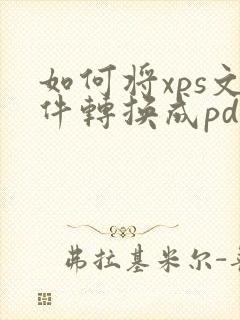 如何将xps文
件轉换成pd
弗拉基米尔-